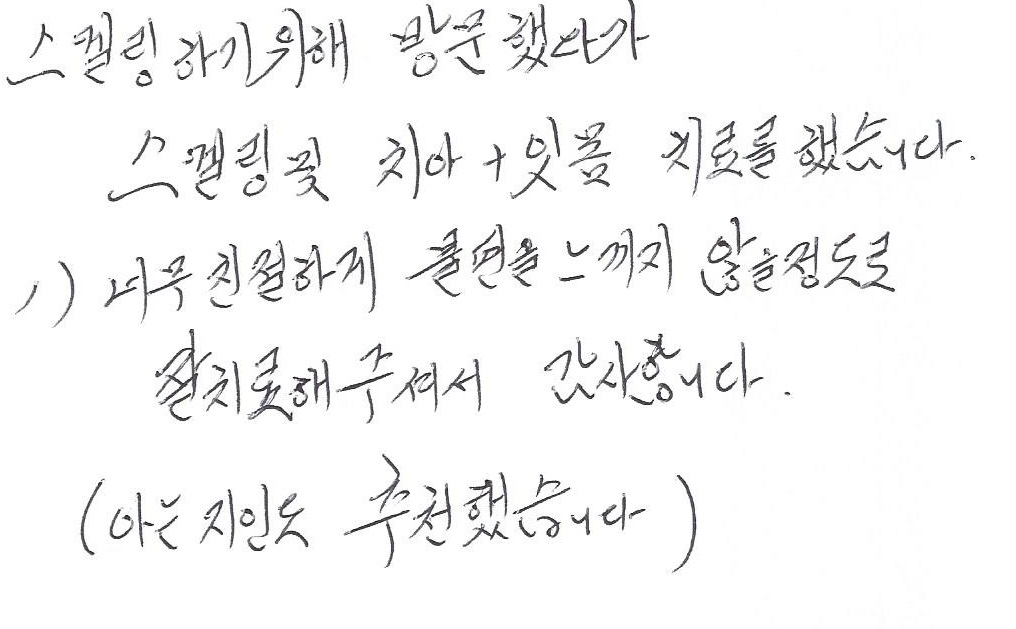 스켈링 하기 위해 방문했다가
스켈링 및 치아 + 잇몸 치료를 했습니다.
1) 너무 친절하게 불편을 느끼지 않을정도로
잘치료해 주셔서 감사합니다.
(아는 지인도 추천했습니다)